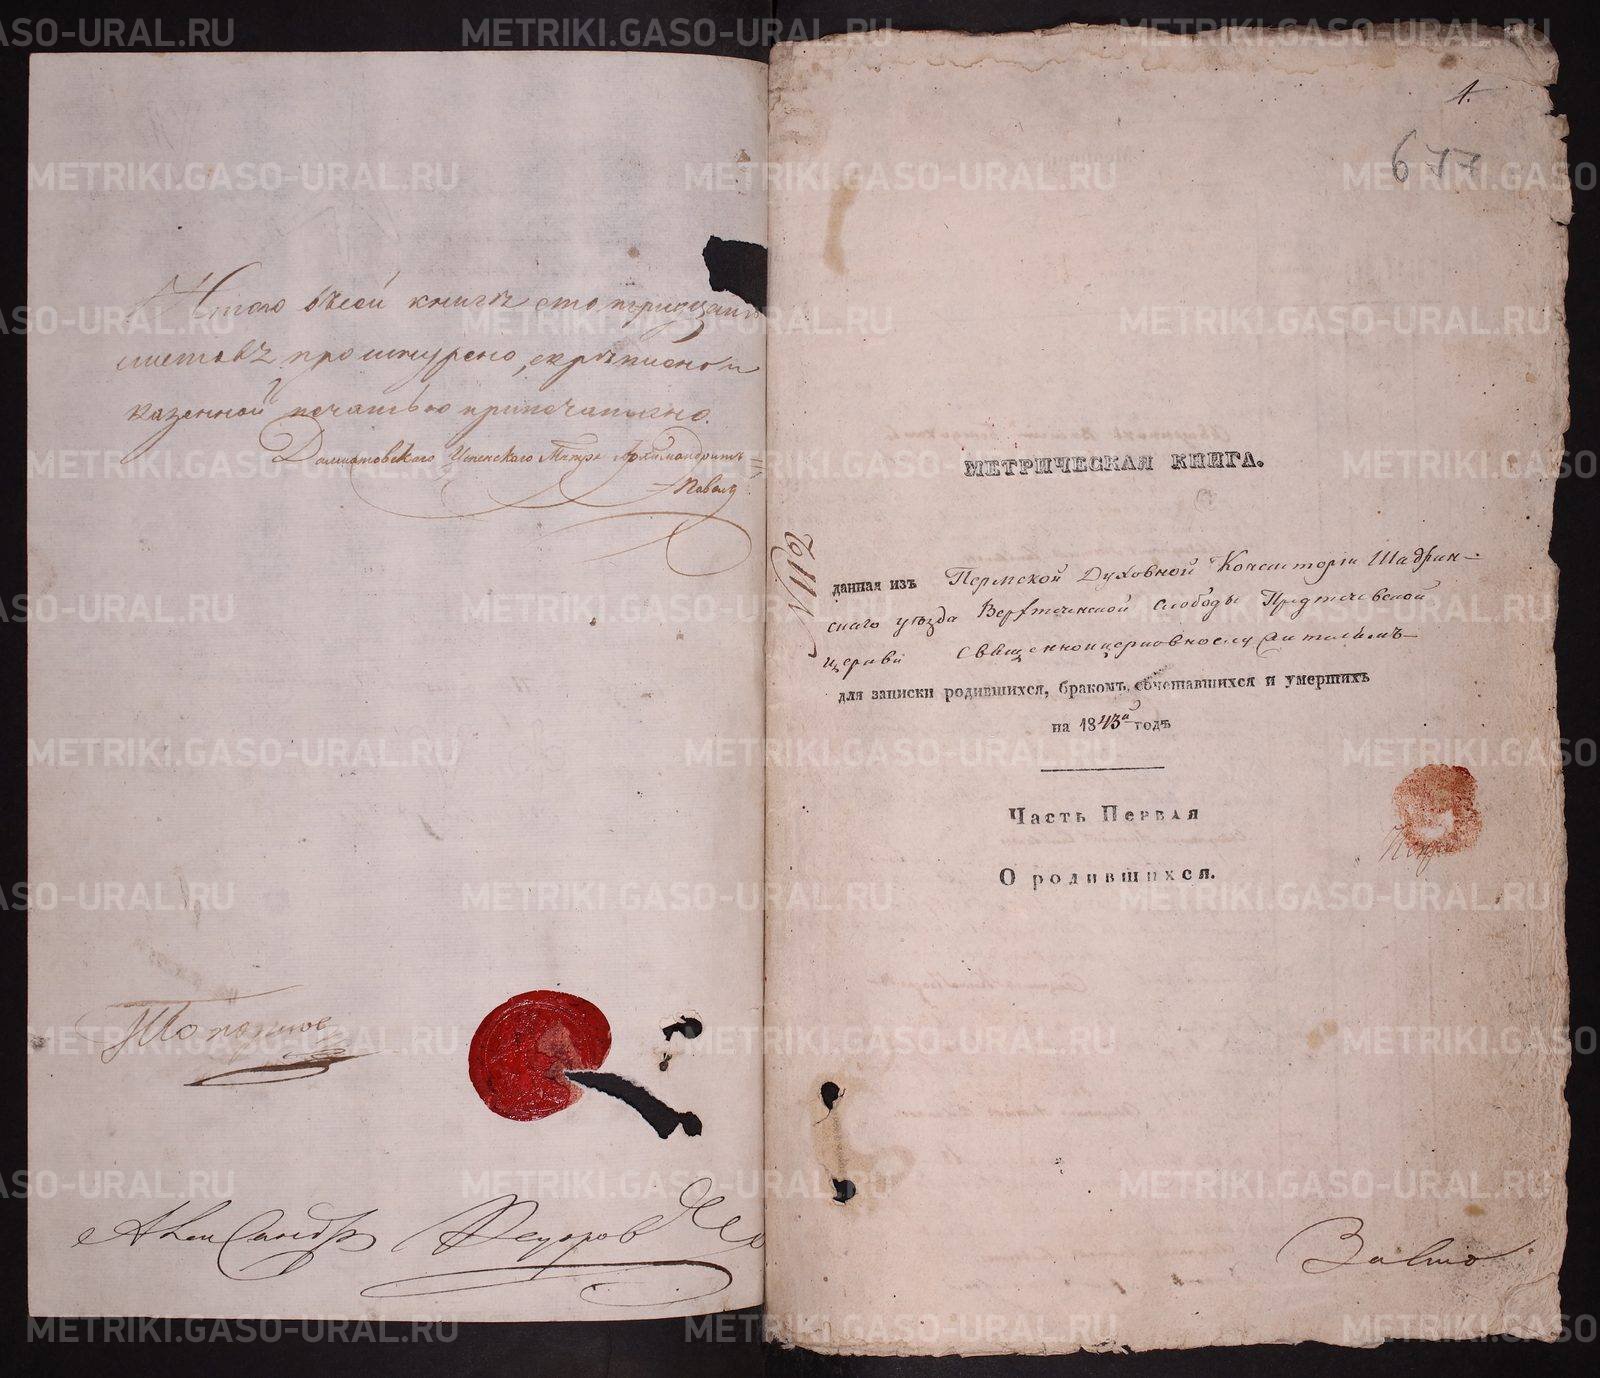 Итого всей книгѣ сто тридцать
листовъ прошнурено, скрѣплено и
казенной печатью припечатано.
Далматовскаго Успенскаго Мтря Архимандритъ
Павелъ
Александръ Федоровъ
1.
677
МЕТРИЧЕСКАЯ КНИГА.
N 112
данная изъ Пермской Духовной Консисторіи Шадрин-
скаго уѣзда Верхтеченской слободы Предтечевской
церкви Священноцерковнослужителямъ
для записки родившихся, бракомъ сочетавшихся и умершихъ
на 1843й годъ
Часть Первая
О родившихся.
METRIKI.GASO-URAL.RU